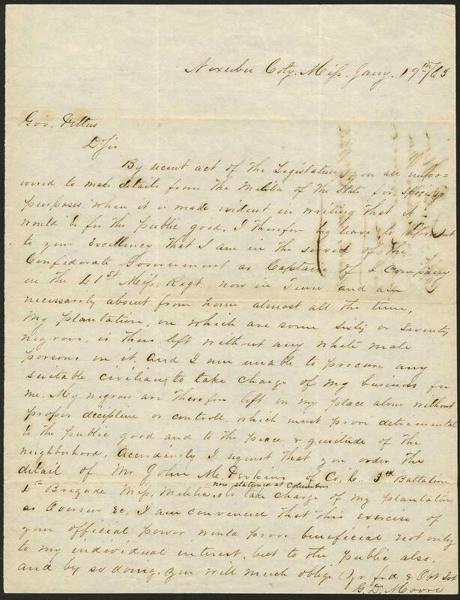 Noxubee Coty. Miss. Jany. 19th/63
Gov. Pettus
D Sir
By recent act of the Legislature you are empow
ered to make details from the Militia of the State for special
purposes when it is made evident in writing that it
would be for the public good. I therefor beg leave to
to your Excellency that I am in the service of the
Confederate Government as Captain of a Company
in the 41st Miss. Regt. now in Tenn and am
necessarily absent from home almost all the time,
My plantation, on which are some sixty or seventy
negroes, is thus left without any white male
persons on it, and I am unable to procure any
suitable civilian to take charge of my business for
me. My negroes are therefor left on my place alone without
proper discipline or controll, which must prove detrimental
to the public good and to the peace & quietude of the
neighborhood. Accordingly I request that you order the
detail of Mr. John M. Perkins of Co. C. 3rd Battalion
now stationed at Columbus
1st Brigade Miss. Militia, to take charge of my plantation
as Overseer &c. I am convinced that this exercise of
your official power would prove beneficial not only
to my individual interest, but to the public also,
and by so doing, you will much oblige Yr frd & Obt Svt
G. D. Moore